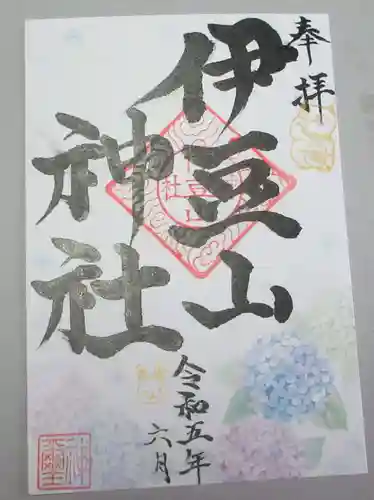 奉拝
伊豆山
神社
令和五年
六月